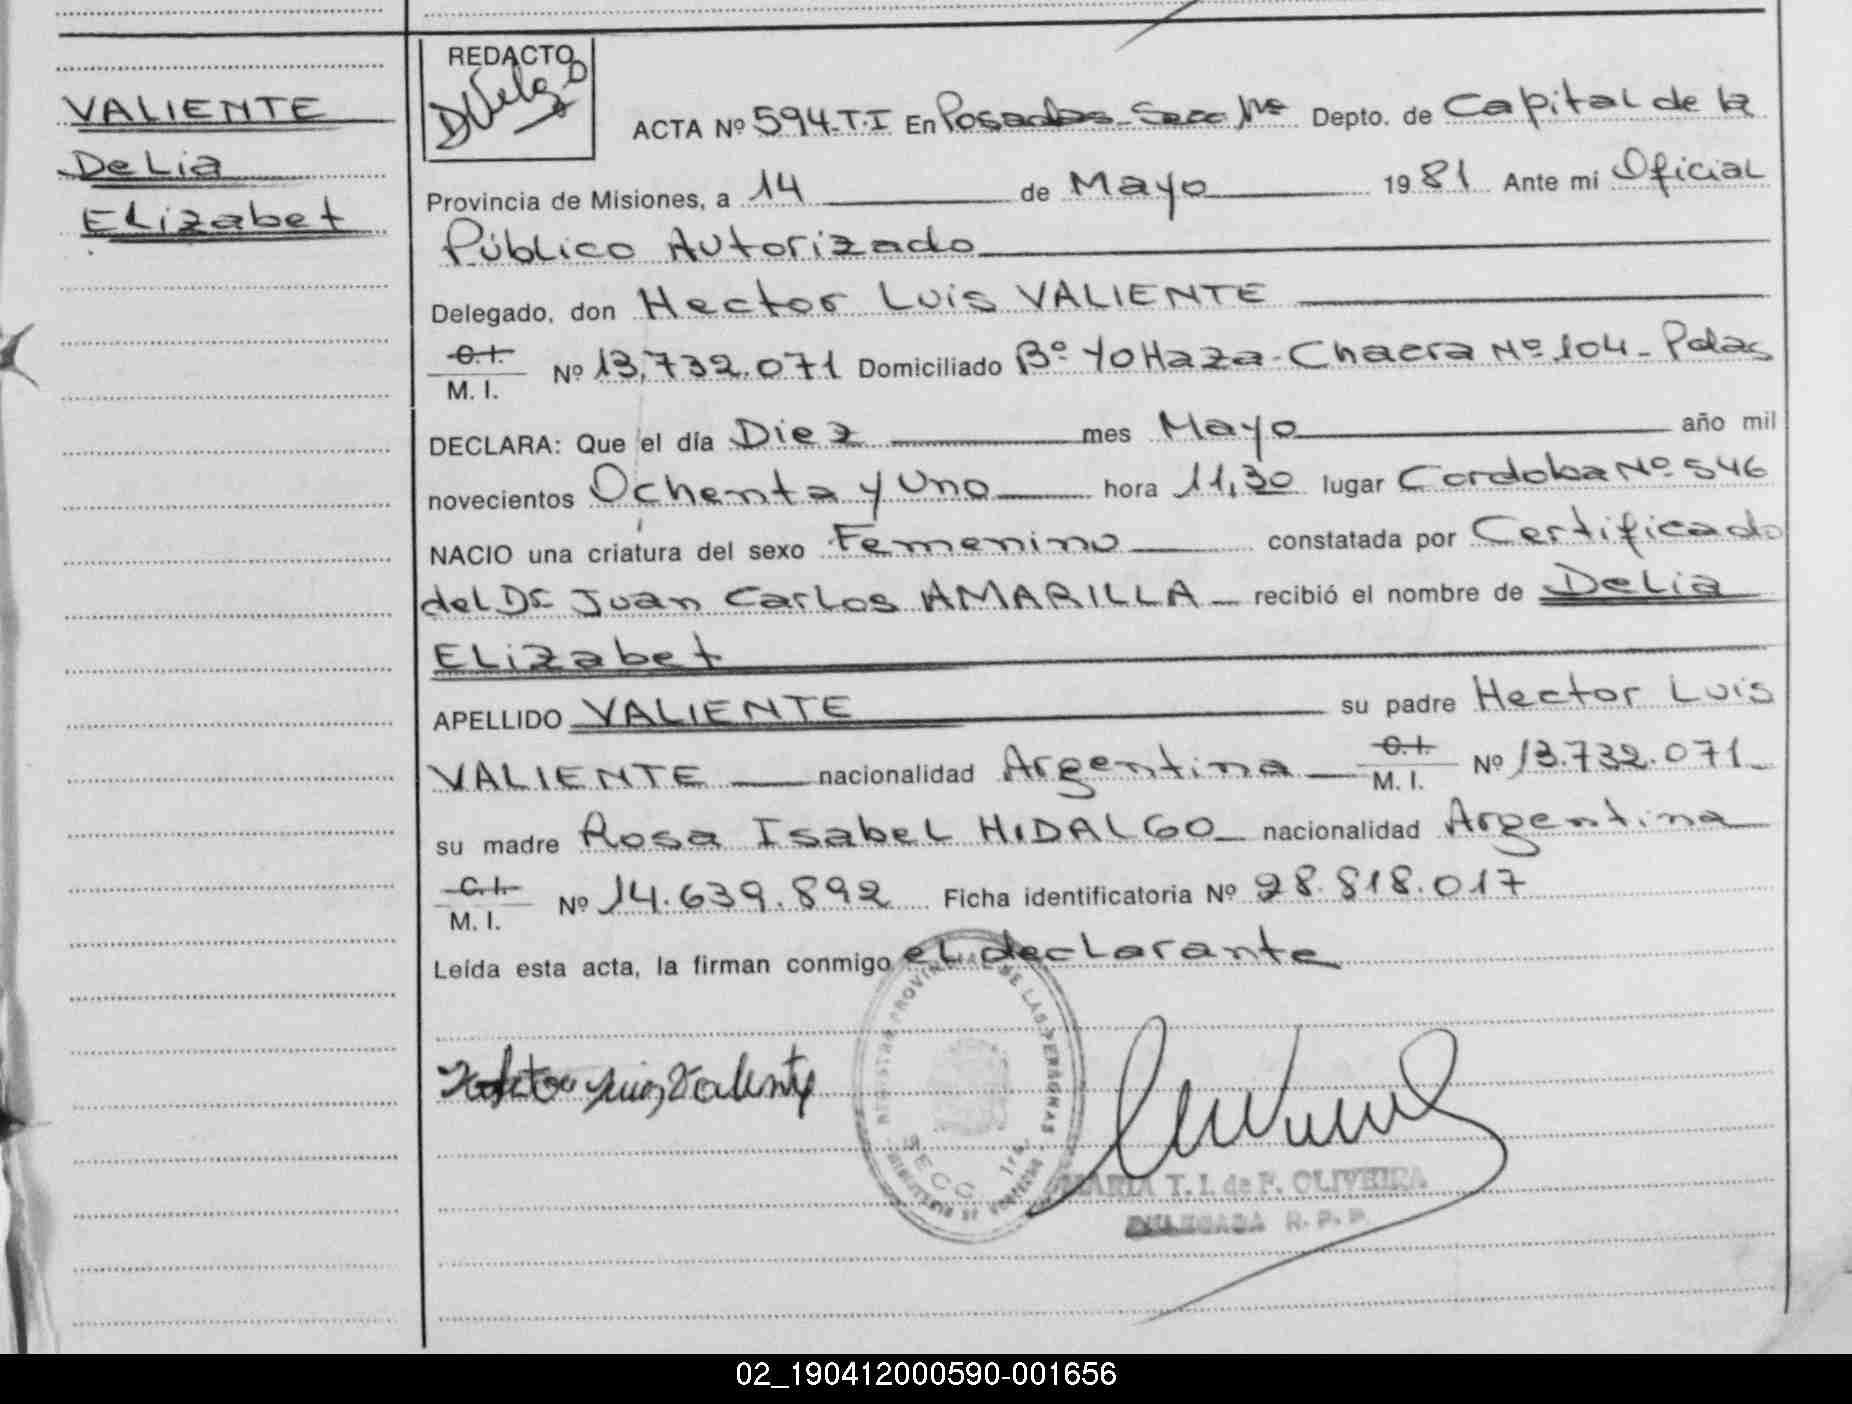 VALIENTE
Delia
Elizabet
REDACTO
ACTA Nº 594-T.I En Posadas-Secc 1ra Depto. de Capital de la
Provincia de Misiones, a 14 de Mayo 1981 Ante mi Oficial
Público Autorizado
Delegado, don Hector Luis VALIENTE
C.I.
M. I. Nº 13.732.071 Domiciliado Bº YoHaza-Chacra Nº 104-Pdas
DECLARA: Que el día Diez mes Mayo año mil
novecientos Ochenta y Uno hora 11,30 lugar Cordoba Nº 546
NACIO una criatura del sexo Femenino constatada por Certificado
del Dr Juan Carlos AMARILLA recibió el nombre de Delia
Elizabet
APELLIDO VALIENTE su padre Hector Luis
VALIENTE nacionalidad Argentina C.I. M. I. Nº 13.732.071
su madre Rosa Isabel HIDALGO nacionalidad Argentina
C.I.
M. I. Nº 14.639.892 Ficha identificatoria Nº 28.818.017
Leída esta acta, la firman conmigo el declarante
REGISTRO PROVINCIAL DE LAS PERSONAS
SECC 1ra
Hector Luis Valiente
MARIA T. I. de F. OLIVEIRA
DELEGADA R. P. P.
02_190412000590-001656